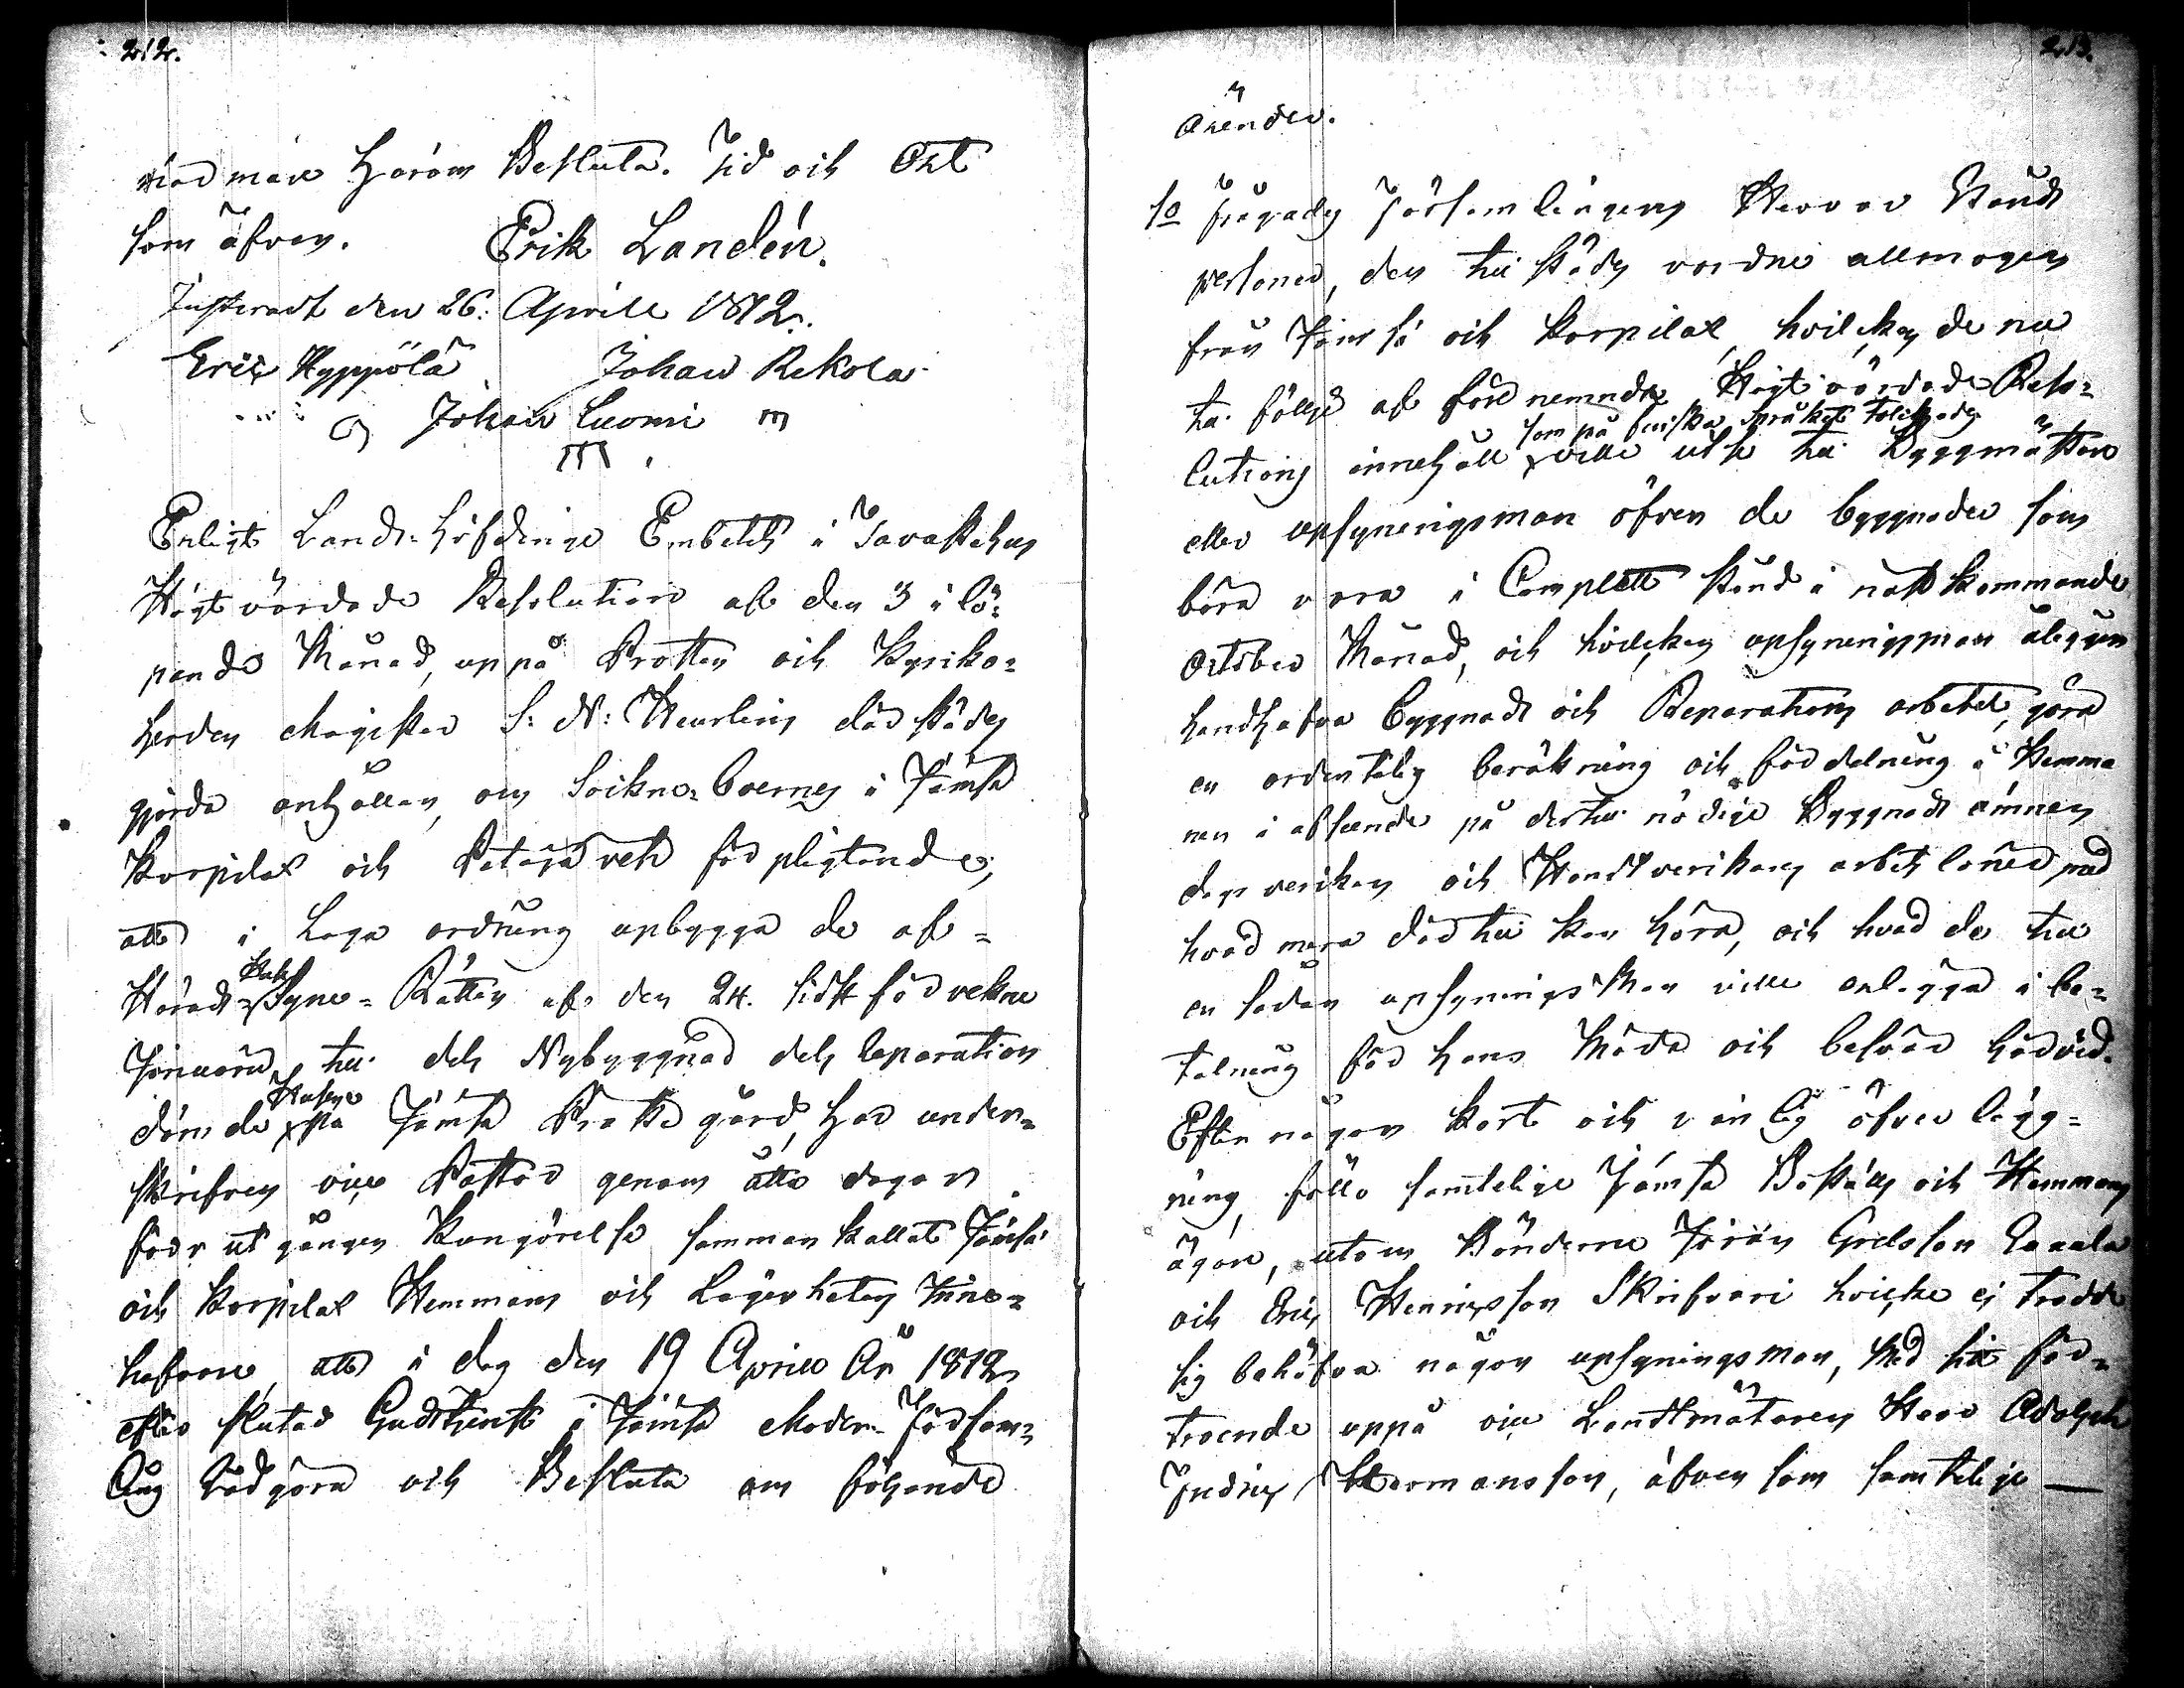 212.
nad märe Härom Besluta. Tid och Ort
som åfvan. Erik Landén.
Justeradt den 26: Aprill 1812.
Eric Hyppölä Johan Rekola
Johan Luomi m
m
Enligt Lands-Höfdinge Embetets i Tavastehus
Högt värdade Resolution af den 3 i lö-
pande Månad, uppå Prosten och Kyrko-
herden Magister S: N: Heurlins därstädes
gjorda anhållan, om Sokne-boernes i Jämsä
Korpilax och Petäjäveh förpligtande,
att i Laga ordning upbygga de af
Härads-Husesyne-Rätten af den 24. sidst förvekne
Januarii till dels Nybyggnad dels Reparation
dömde Husen på Jämsä Prästegård, har under-
skrifven vice Pastor genom åtta dagar
förr utgången Kungörelse sammankallat Jämsä
och Korpilax Hemmans och Lägenheters Inne-
hafvare, att i dag den 19 Aprill År 1812
efter slutad Gudstjenst i Jämsä Moder-Församl-
ing rådgöra och Besluta om följande
213.
Ärender.
1o frågades Församlingens Herrar Stånds
personer, den tillstädes vordne allmogen
från Jämsä och Korpilax, hvilcken de nu
till följe af förenemnde Högt värdade Reso-
lutions innehåll som på finska Språket tolckades ville utse till Byggmästare
eller upsyningsman öfver de byggnader som
böra vara i Complett stånd i nästkommande
October Månad, och hvilcken upsyningsman åligger
handhafva byggnads och Reparations arbetet, göra
en ordentelig beräkning och fördelning å Hemma
nen i afseende på dertill nödige Byggnads ämnen
dagsverken och Handtverkares arbets löner med
hvad mera därtill kan höra, och hvad de till
en sådan upsynings Man ville anlägga i be-
talning för hans Möda och besvär härvid.
Efter någon kort och vänlig öfverlägg-
ning, föllo samtelige Jämsä Boställs och Hemmans
ägare, utom Bönderne Jöran Grelsson
och Eric Henricsson Skrifvari hvilcke ej trodde
sig behöfva någon upsyningsman, Med sitt för-
troende uppå vice Landtmätaren Herr Adolph
Hermansson, äfven som samtelige —